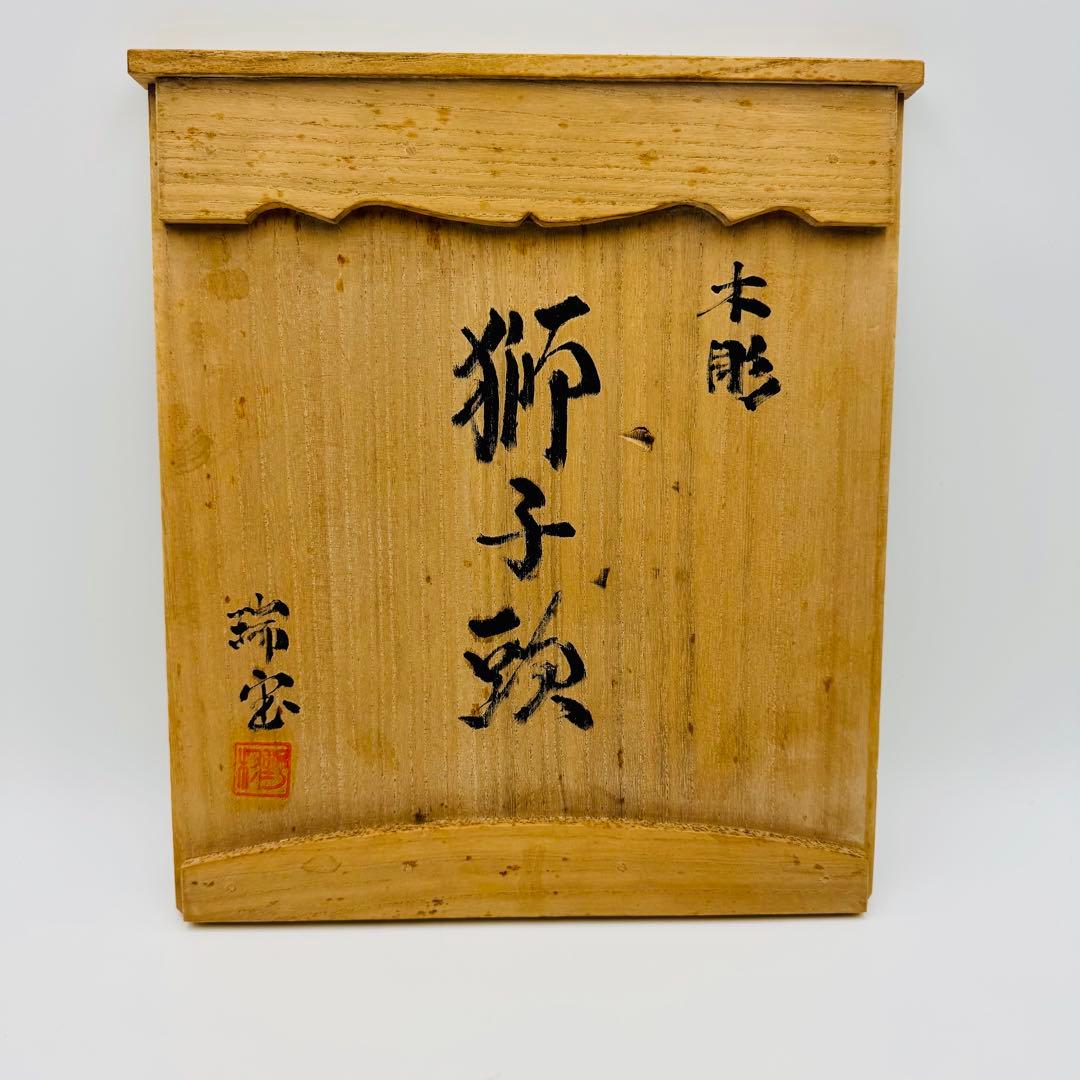 木彫
獅子頭
瑞宝